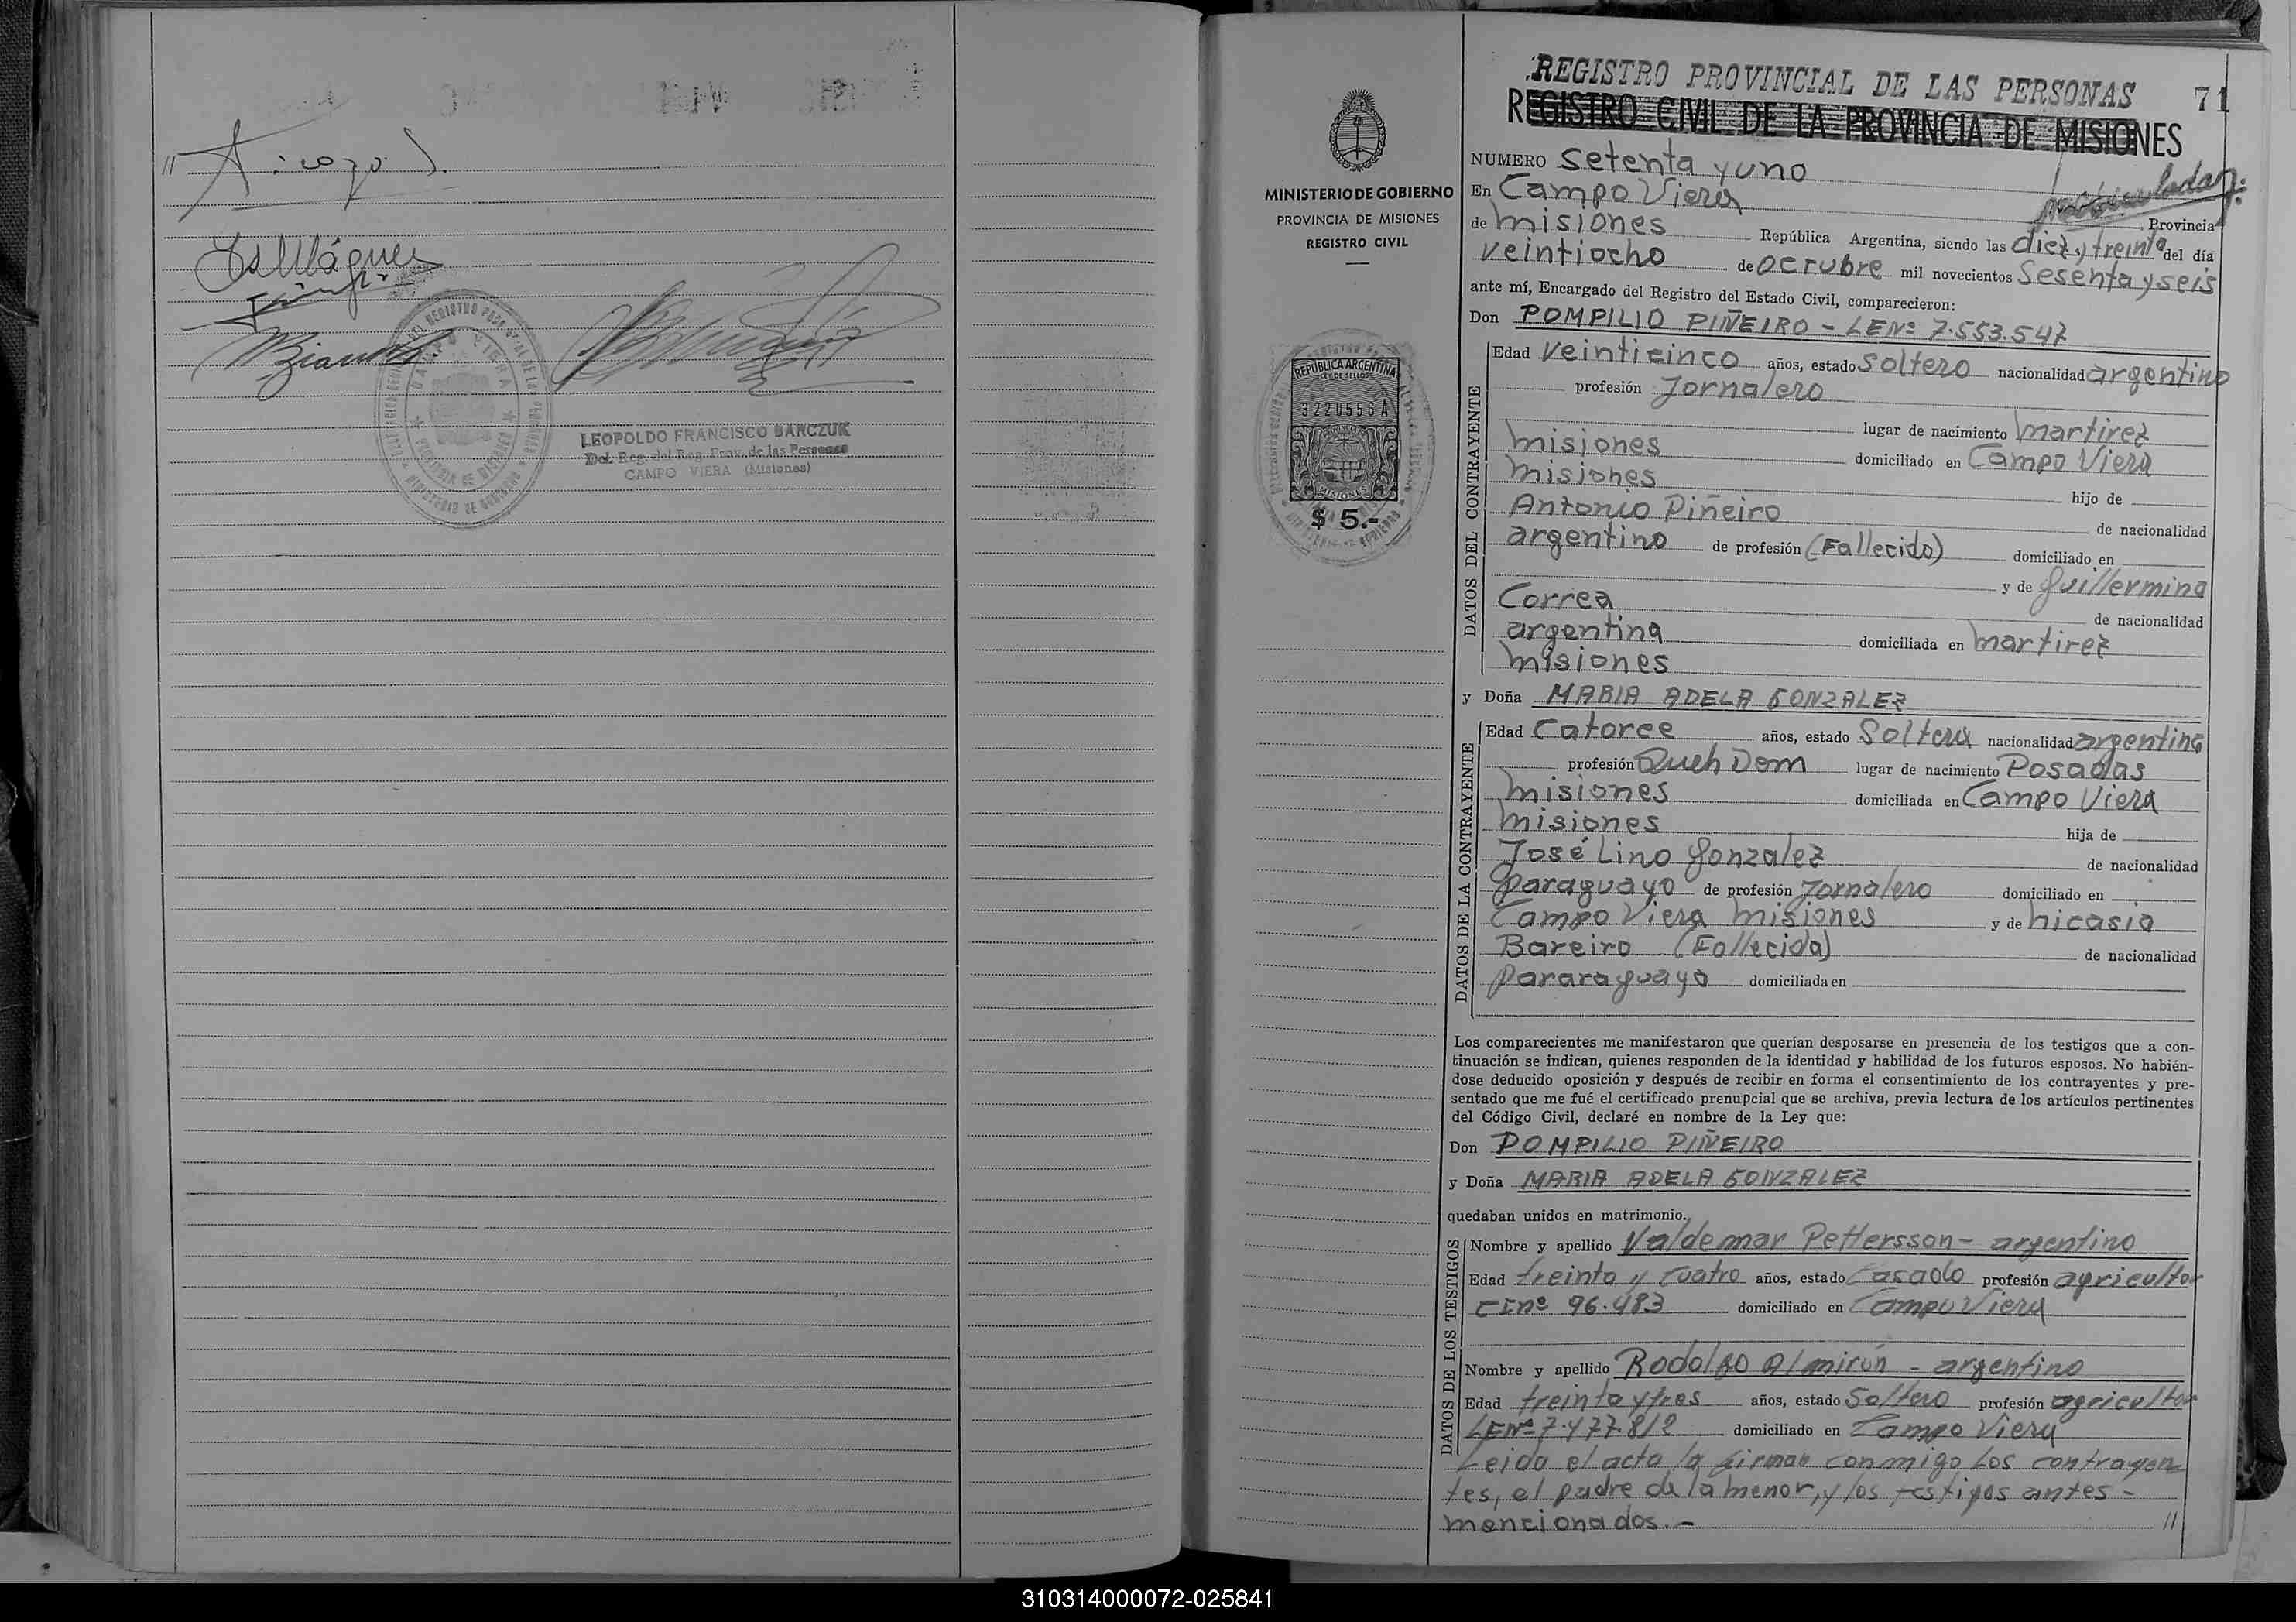 LEOPOLDO FRANCISCO BARCZUK
Del. Reg. del Reg. Prov. de las Personas
CAMPO VIERA (Misiones)
MINISTERIO DE GOBIERNO
PROVINCIA DE MISIONES
REGISTRO CIVIL
REPÚBLICA ARGENTINA
LEY DE SELLOS
3220556 A
MISIONES
$ 5.-
REGISTRO PROVINCIAL DE LAS PERSONAS 71
REGISTRO CIVIL DE LA PROVINCIA DE MISIONES
NUMERO Setenta y uno
En Campo Viera
Provincia
de misiones República Argentina, siendo las diez y treinta del día
veintiocho de octubre mil novecientos Sesenta y seis
ante mí, Encargado del Registro del Estado Civil, comparecieron:
Don POMPILIO PIÑEIRO - LENº 7.553.547
DATOS DEL CONTRAYENTE
Edad veinticinco años, estado soltero nacionalidad argentino
profesión Jornalero
lugar de nacimiento martirez
misiones domiciliado en Campo Viera
misiones hijo de
Antonio Piñeiro de nacionalidad
argentino de profesión (Fallecido) domiciliado en
y de Guillermina
Correa de nacionalidad
argentina domiciliada en martirez
misiones
y Doña MARIA ADELA GONZALEZ
DATOS DE LA CONTRAYENTE
Edad Catorce años, estado Soltera nacionalidad argentina
profesión Queh Dom lugar de nacimiento Posadas
misiones domiciliada en Campo Viera
misiones hija de
José Lino Gonzalez de nacionalidad
Paraguayo de profesión Jornalero domiciliado en
Campo Viera misiones y de nicasia
Bareiro (Fallecida) de nacionalidad
Pararaguaya domiciliada en
Los comparecientes me manifestaron que querían desposarse en presencia de los testigos que a con-
tinuación se indican, quienes responden de la identidad y habilidad de los futuros esposos. No habién-
dose deducido oposición y después de recibir en forma el consentimiento de los contrayentes y pre-
sentado que me fué el certificado prenupcial que se archiva, previa lectura de los artículos pertinentes
del Código Civil, declaré en nombre de la Ley que:
Don POMPILIO PIÑEIRO
y Doña MARIA ADELA GONZALEZ
quedaban unidos en matrimonio.
DATOS DE LOS TESTIGOS
Nombre y apellido Valdemar Pettersson - argentino
Edad treinta y cuatro años, estado casado profesión agricultor
CINº 96.483 domiciliado en Campo Viera
Nombre y apellido Rodolfo Almirón - argentino
Edad treinta y tres años, estado Soltero profesión agricultor
LENº 7.477.812 domiciliado en Campo Viera
Leida el acta la firman conmigo los contrayen
tes, el padre de la menor, y los testigos antes -
mencionados. - //
310314000072-025841